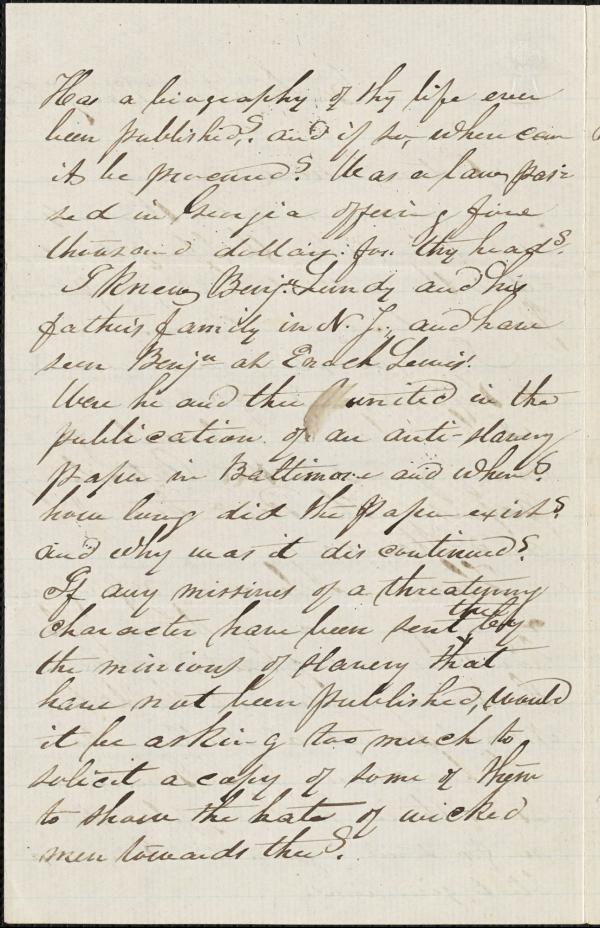 Has a biography of thy life ever
been published?, and if so, where can
it be procured? Was a law pas=
sed in Georgia offering five
thousand dollars for thy head?
I knew Benj. Lundy and his
father's family in N. J., and have
seen Benjn at Enoch Lewis'.
Were he and thee united in the
publication of an anti-slavery
paper in Baltimore and when?
how long did the paper exist?
and why was it discontinued?
If any missives of a threatening
character have been sent thee by
the minions of slavery that
have not been published, would
it be asking too much to
solicit a copy of some of them
to show the hate of wicked
men towards thee?.